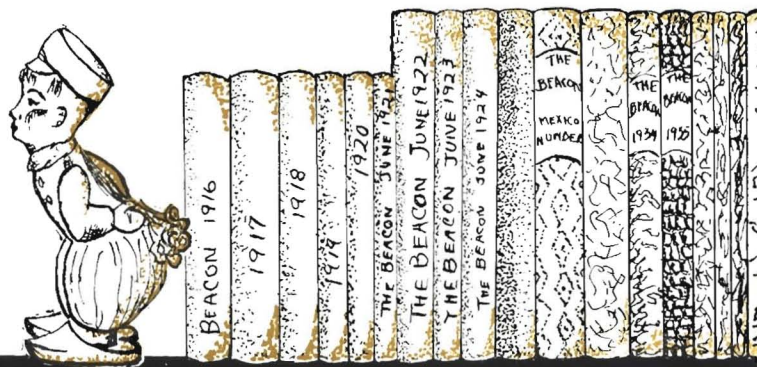 BEACON 1916
1917
1918
1919
1920
THE BEACON JUNE 1921
THE BEACON JUNE 1922
THE BEACON JUNE 1923
THE BEACON JUNE 1924
THE
BEACON
MEXICO
NUMBER
THE
BEACON
1934
THE
BEACON
1935